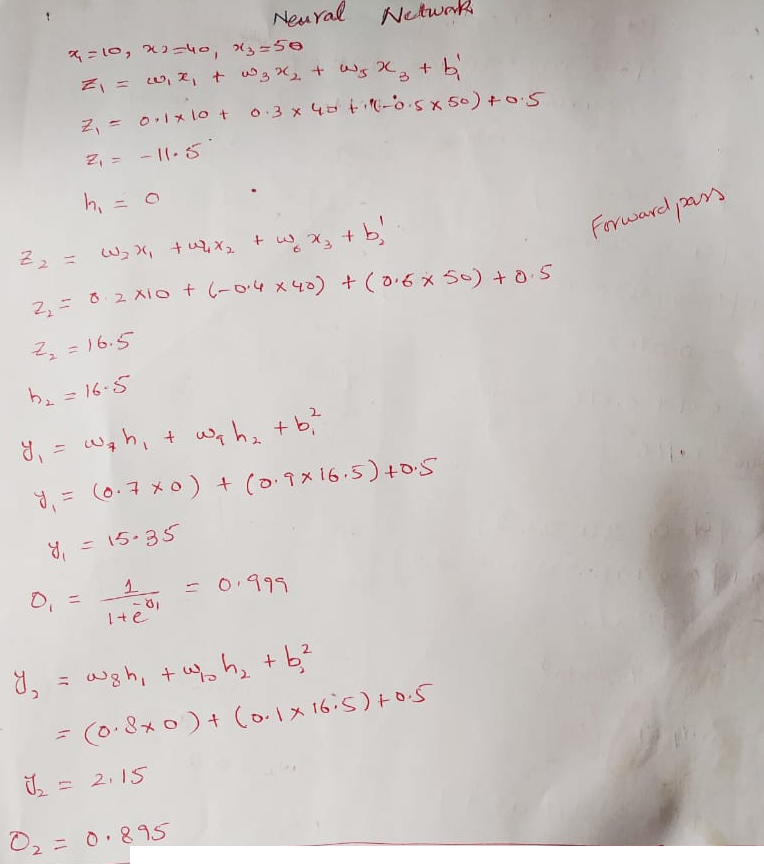 Neural Network
x₁=10, x₂=40, x₃=50
z₁ = w₁x₁ + w₃x₂ + w₅x₃ + b₁¹
z₁ = 0.1x10 + 0.3 x 40 + (-0.5 x 50) + 0.5
z₁ = -11.5
h₁ = 0
Forward pass
z₂ = w₂x₁ + w₄x₂ + w₆x₃ + b₂¹
z₂ = 0.2 x10 + (-0.4 x40) + (0.6 x 50) + 0.5
z₂ = 16.5
h₂ = 16.5
y₁ = w₇h₁ + w₉h₂ + b₁²
y₁ = (0.7 x 0) + (0.9 x 16.5) + 0.5
y₁ = 15.35
O₁ = 1/(1+e^-y₁) = 0.999
y₂ = w₈h₁ + w₁₀h₂ + b₂²
= (0.8x0) + (0.1 x 16.5) + 0.5
y₂ = 2.15
O₂ = 0.895